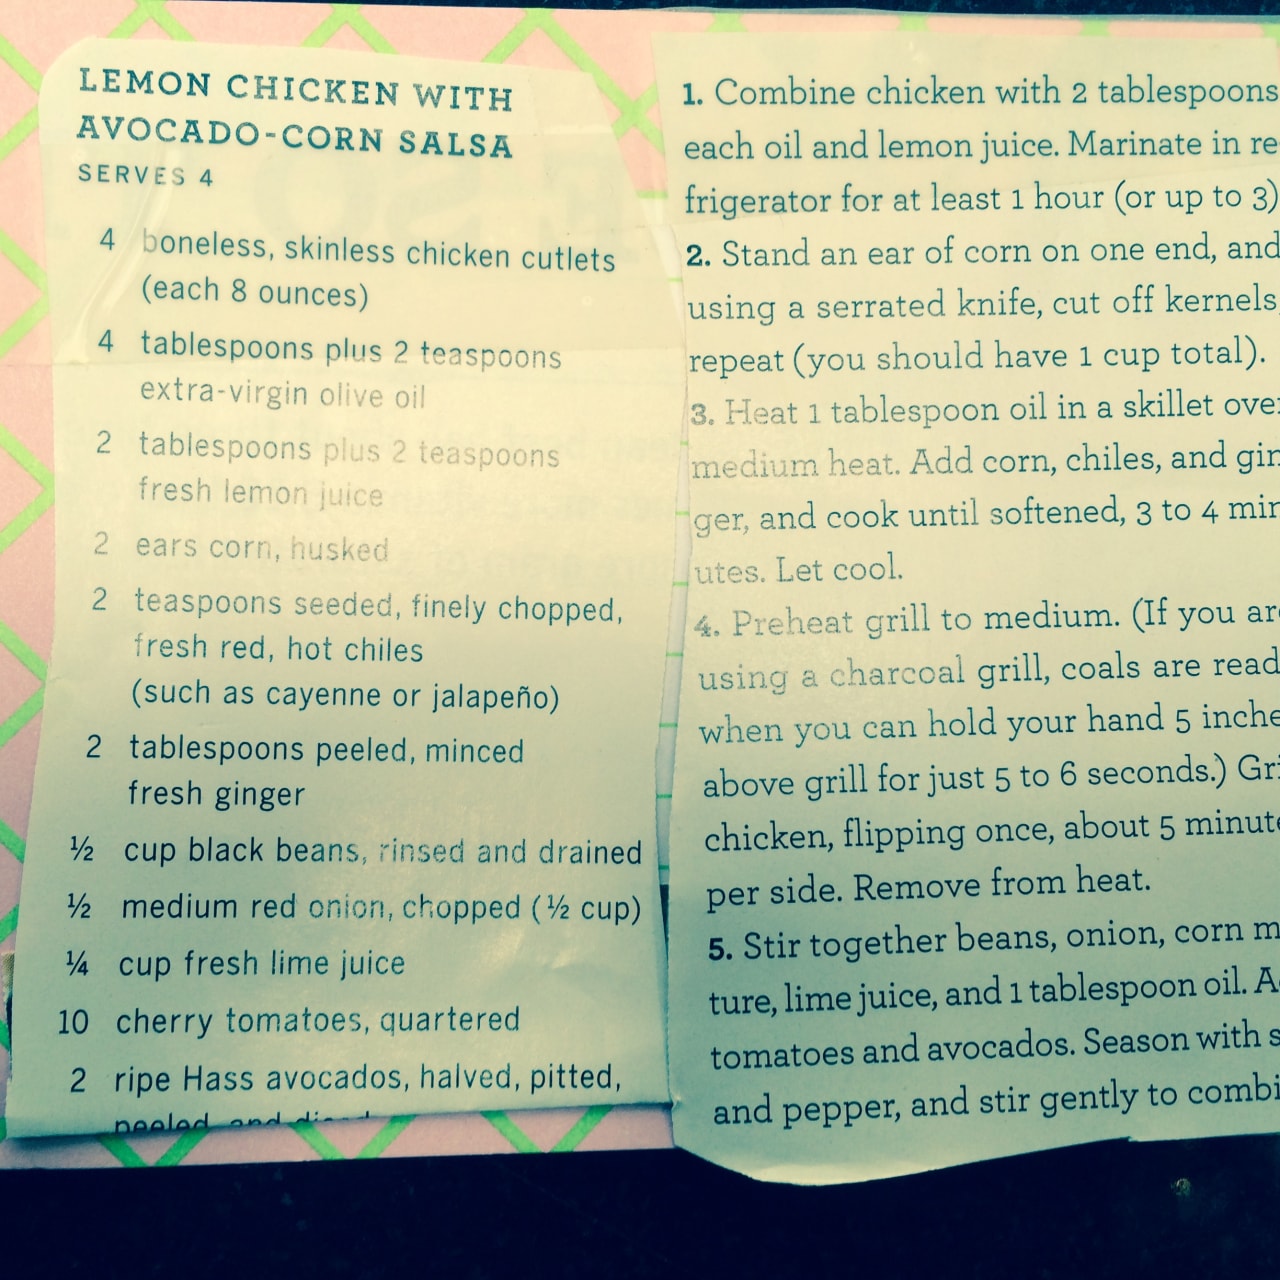 LEMON CHICKEN WITH
AVOCADO-CORN SALSA
SERVES 4
4 boneless, skinless chicken cutlets
(each 8 ounces)
4 tablespoons plus 2 teaspoons
extra-virgin olive oil
2 tablespoons plus 2 teaspoons
fresh lemon juice
2 ears corn, husked
2 teaspoons seeded, finely chopped,
fresh red, hot chiles
(such as cayenne or jalapeño)
2 tablespoons peeled, minced
fresh ginger
½ cup black beans, rinsed and drained
½ medium red onion, chopped (½ cup)
¼ cup fresh lime juice
10 cherry tomatoes, quartered
2 ripe Hass avocados, halved, pitted,
peeled, and diced
1. Combine chicken with 2 tablespoons
each oil and lemon juice. Marinate in re-
frigerator for at least 1 hour (or up to 3)
2. Stand an ear of corn on one end, and
using a serrated knife, cut off kernels,
repeat (you should have 1 cup total).
3. Heat 1 tablespoon oil in a skillet over
medium heat. Add corn, chiles, and gin
ger, and cook until softened, 3 to 4 min
utes. Let cool.
4. Preheat grill to medium. (If you are
using a charcoal grill, coals are read
when you can hold your hand 5 inche
above grill for just 5 to 6 seconds.) Gri
chicken, flipping once, about 5 minute
per side. Remove from heat.
5. Stir together beans, onion, corn m
ture, lime juice, and 1 tablespoon oil. A
tomatoes and avocados. Season with s
and pepper, and stir gently to combi